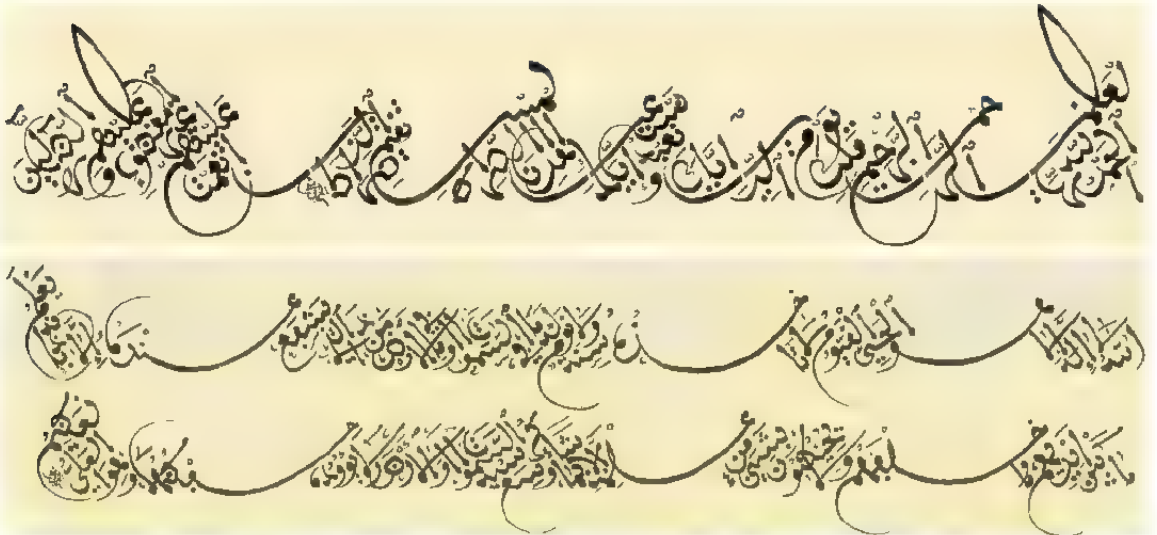 الحمد لله رب العالمين الرحمن الرحيم مالك يوم الدين إياك نعبد وإياك نستعين اهدنا الصراط المستقيم صراط الذين أنعمت عليهم غير المغضوب عليهم ولا الضالين
الله لا إله إلا هو الحي القيوم لا تأخذه سنة ولا نوم له ما في السموات وما في الأرض من ذا الذي يشفع عنده إلا بإذنه يعلم
ما بين أيديهم وما خلفهم ولا يحيطون بشيء من علمه إلا بما شاء وسع كرسيه السموات والأرض ولا يئوده حفظهما وهو العلي العظيم